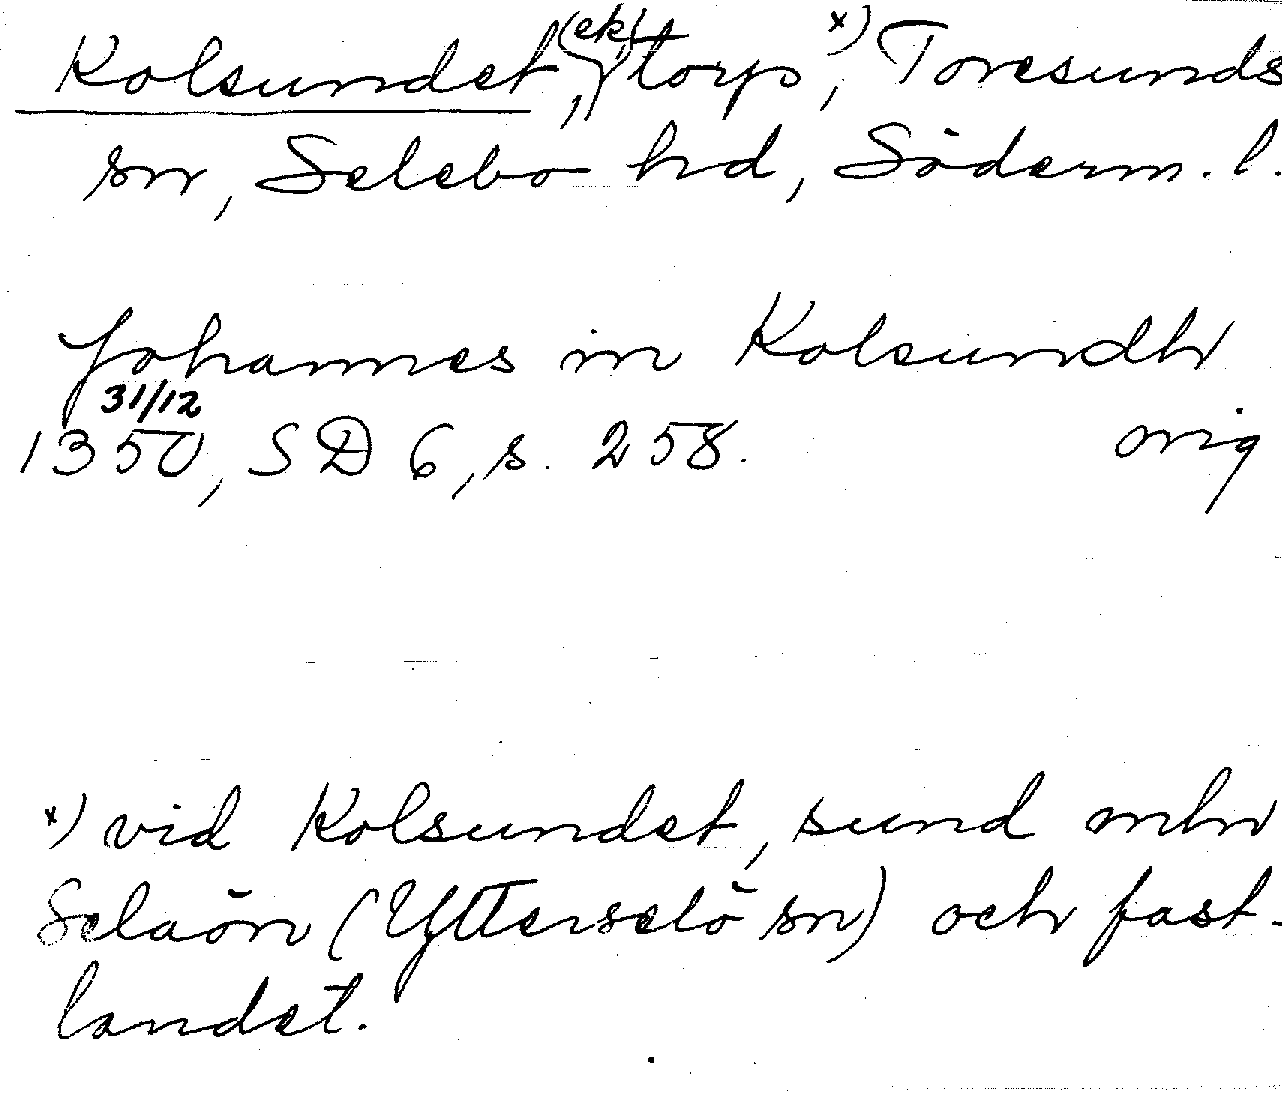 Kolsundet, (ek) torp x), Toresunds
sn, Selebo hd, Söderm. l.
Johannes in Kolsundh
31/12
1350, SD 6, s. 258. orig
x) vid Kolsundet, sund mln
Selaön (Ytterselö sn) och fast-
landet.